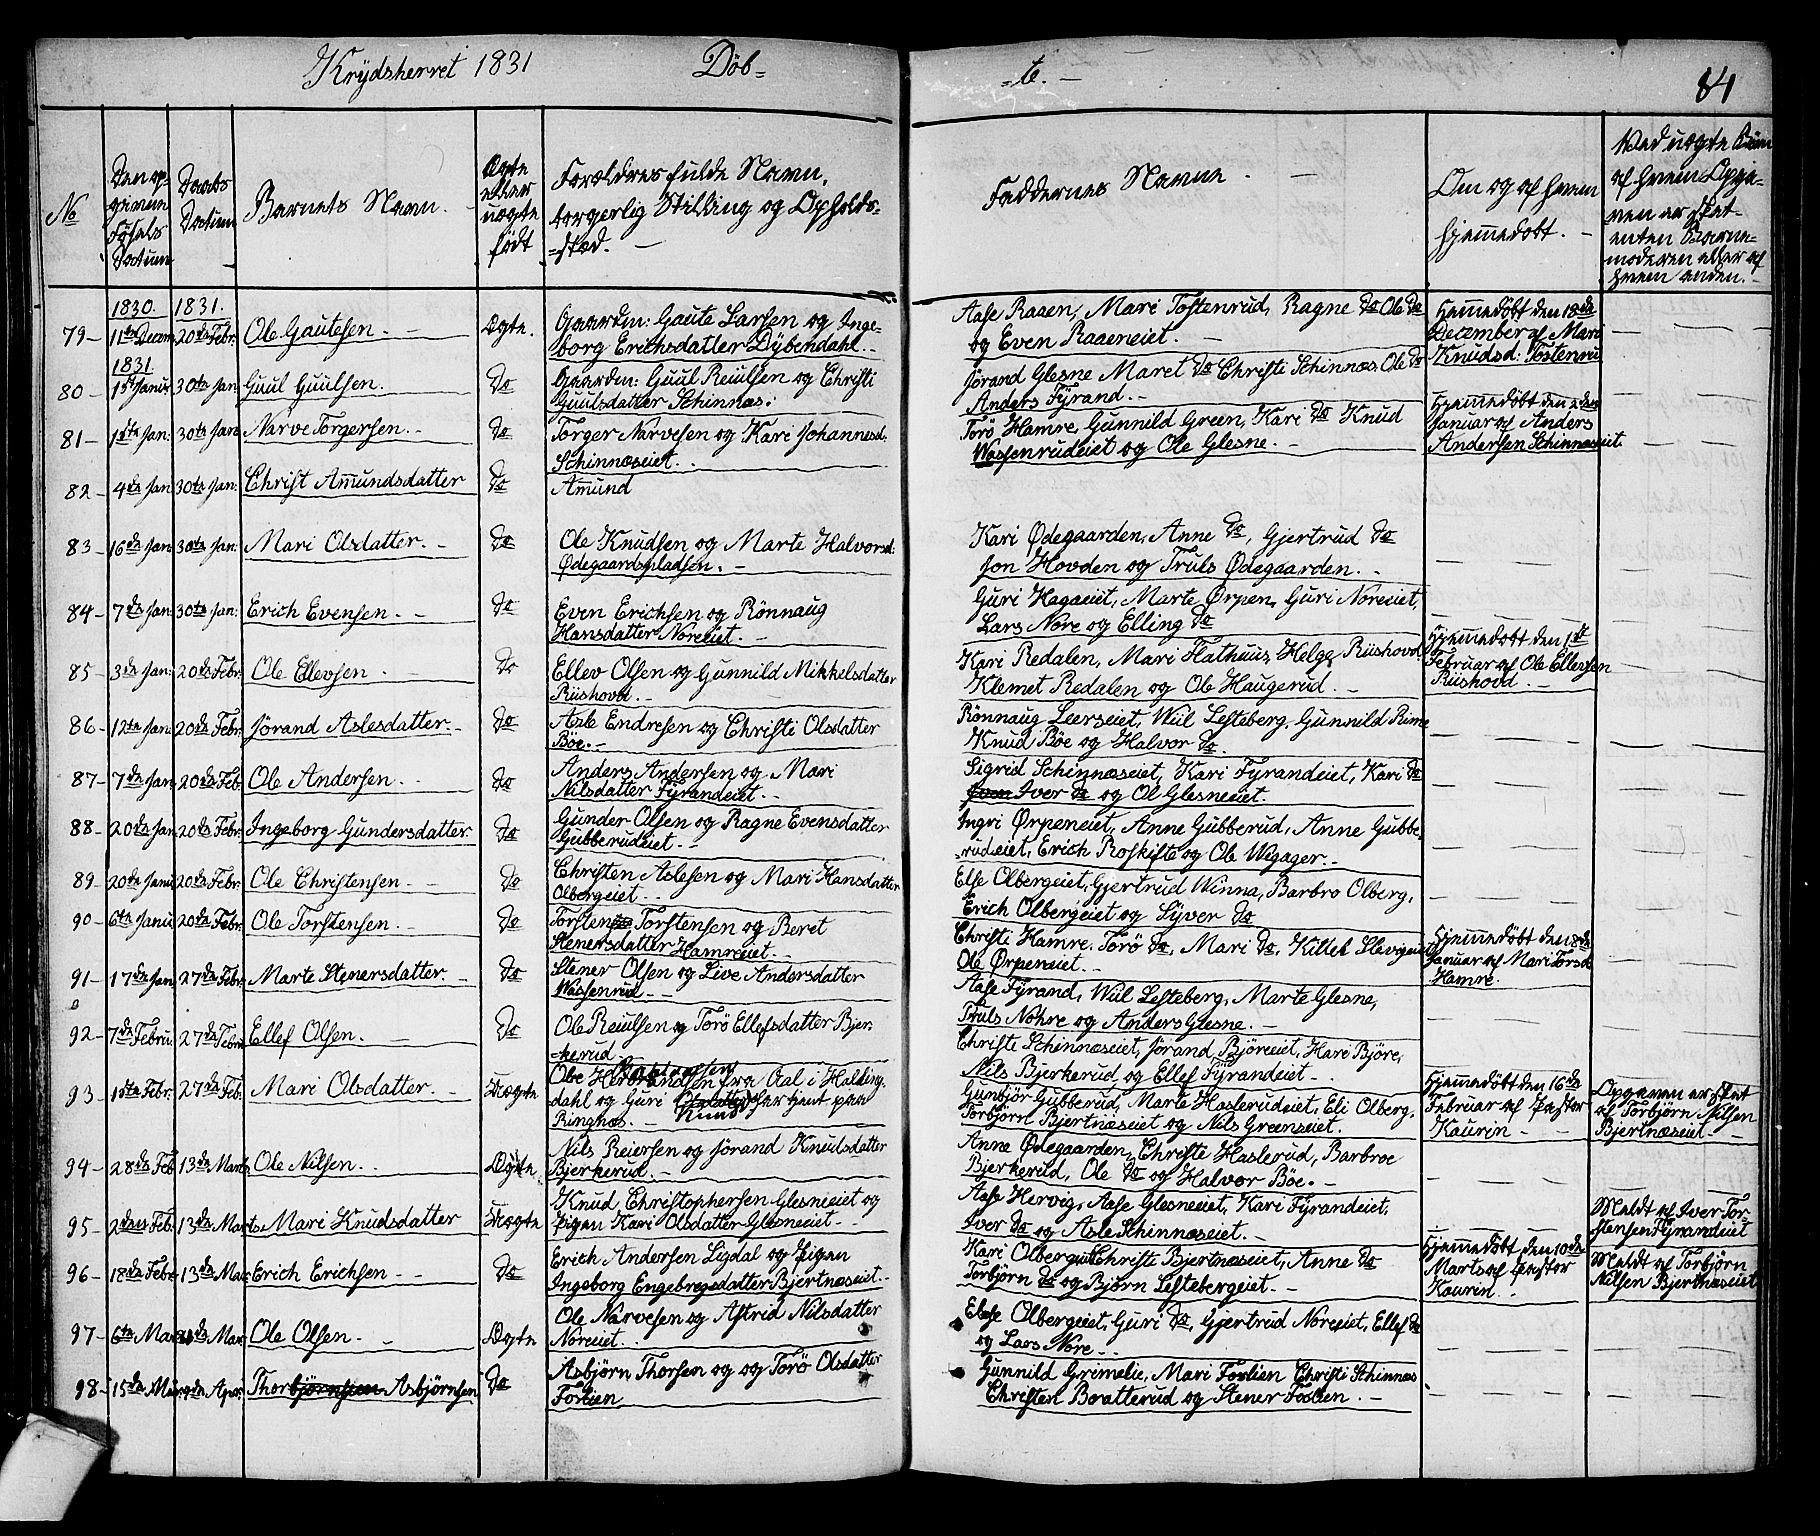 Krydsherret 1831 Döb=
=te. —
84
No
Den op-
givne
Födsels
Datum
Daabs
Datum
Barnets Navn.
Ægte
eller
uægte
født
Forældres fulde Navn,
borgerlig Stilling og Opholds-
=sted. —
Faddernes Navne. —
Om og af hvem
hjemmedøbt. —
Ved uægte Børn
af hvem Opgi-
ven er skeet-
enten Barne-
moderen eller af
hvem anden. —
1830. 1831.
79— 11te Decem 20de Febr. Ole Gautesen. — Ægte. Gaarden: Gaute Larsen og Inge-
borg Erichsdatter Dybendahl. —
Aase Raaen, Mari Tostenrud, Ragne Do Ole Do
og Even Raaeneiet. —
Hjemmedöbt den 18de
December af Mari
Knudsd: Tostenru
1831
80— 1ste Janu: 30te Jan Guul Guulsen. Do Gaarden: Guul Reiulsen og Christi
Guulsdatter Schinnæs.
Jörand Glesne Maret Do Christi Schinnæs, Ole Do
Anders Fyrand. —
81— 1ste Jan: 30te Jan Narve Torgersen. — Do Torger Narvesen og Kari Johannesd:
Schinnæseiet. —
Torö Hamre, Gunnild Green, Kari Do Knud
Wassenrudeiet og Ole Glesne. —
Hjemmedöbt den 2den
Januar af Anders
Andersen Schinnæseiet
82— 4de Jan 30te Jan: Christ Amundsdatter Do Amund
83— 16de Jan 30te Jan: Mari Olsdatter. — Do Ole Knudsen og Marte Halvorsd:
Ødegaardspladsen. —
Kari Ødegaarden, Anne Do, Gjertrud Do
Jon Hovden og Truls Ødegaarden. —
84— 7de Jan: 30te Jan: Erich Evensen. — Do Even Erichsen og Rönnaug
Hansdatter Noreeiet. —
Guri Hagaeiet, Marte Ørpen, Guri Noreeiet,
Lars Nore og Elling Do
85— 3de Jan: 20de Febr. Ole Ellevsen — Do Ellev Olsen og Gunnild Mikkelsdatter
Riishovd. —
Kari Redalen, Mari Flathuus, Helge Riishovd
Klemet Redalen og Ole Haugerud. —
Hjemmedöbt den 1ste
Februar af Ole Ellevsen
Riishovd. —
86— 12te Jan: 20de Febr: Jörand Aslesdatter. — Do Asle Endresen og Christi Olsdatter
Böe. —
Rönnaug Leerseiet, Wiil Lesteberg, Gunnild Rime
Knud Böe og Halvor Do.
87— 7de Jan: 20de Feb. Ole Andersen. — Do Anders Andersen og Mari
Nilsdatter Fyrandeiet. —
Sigrid Schinnæseiet, Kari Fyrandeiet, Kari Do
Iver Do og Ol Glesneeiet.
88— 20de Jan 20de Febr Ingeborg Gundersdatter Do Gunder Olsen og Ragne Evensdatter
Gubberudeiet. —
Ingri Ørpeneiet, Anne Gubberud, Anne Gubbe-
rudeiet, Erich Roskifte og Ole Wegager. —
89— 20de Janu 20de Febr Ole Christensen. — Do Christen Aslesen og Mari Hansdatter
Olbergeiet. —
Else Olbergeiet, Gjertrud Winna, Barbro Olberg,
Erich Olbergeiet og Syver Do
90— 6te Janu 20de Febr. Ole Torstensen. — Do Torsten Torstensen og Beret
Stenersdatter Hamreeiet. —
Christi Hamre, Torö Do, Mari Do, Killef Slevigeiet
Ole Ørpeneiet. —
Hjemmedöbt den 8de
Januar af Mari Torsd
Hamre.
91— 17de Jan 27de Febr. Marte Stenersdatter. — Do Stener Olsen og Live Andersdatter
Wassenrud. —
Aase Fyrand, Wiil Lesteberg, Marte Glesne,
Truls Nohre og Anders Glesne. —
92— 7de Febru: 27de Febru Ellef Olsen. — Do Ole Reiulsen og Torö Ellefsdatter Bjer-
=kerud
Christe Schinnæseiet, Jörand Björeeiet, Hari Björe,
Nils Bjerkerud og Ellef Fyrandeiet —
93— 10te Febr. 27de Feb. Mari Olsdatter. — Uægte Ole Herbrandsen fra Aal i Halding-
dahl og Guri Knuds har tjent paa
Ringnæs. —
Gunbjör Gubberud, Marte Haslerudeiet, Eli Olberg,
Torbjörn Bjertnæseiet og Nils Greenseiet.
Hjemmedöbt den 16de
Februar af Pastor
Kaurin —
Opgaven er skeet
af Torbjörn Nilsen
Bjertnæseiet —
94— 28de Feb 13de Marts Ole Nilsen. — Ægte Nils Reiersen og Jörand Knudsdatter
Bjerkerud. —
Anne Ødegaarden, Christe Haslerud, Barbroe
Bjerkerud, Ole Do og Halvor Böe. —
95— 2den Feb. 13de Marts Mari Knudsdatter Uægte Knud Christophersen Glesneeiet og
Pigen Kari Olsdatter Glesneeiet —
Aase Hervig, Aase Glesneeiet, Kari Fyrandeiet,
Iver Do og Asle Schinnæseiet. —
Meldt af Iver Tor-
stensen Fyrandeiet
96— 18de Febr 13de Mar: Erich Erichsen — Do Erich Andersen Sigdal og Pigen
Ingeborg Engebregsdatter Bjertnæseiet. —
Kari Olbergeiet Christe Bjertnæseiet, Anne Do
Torbjörn Do og Björn Lestebergeiet. —
Hjemmedöbt den 10de
Marts af Pastor
Kaurin. —
Meldt af Torbjörn
Nilsen Bjertnæseiet
97— 6te Mar Mar: Ole Olsen. — Ægte Ole Narvesen og Astrid Nilsdatter
Noreeiet. —
Else Olbergeiet, Guri Do, Gjertrud Noreeiet, Ellef Do
og Lars Nore. —
98— 15de Mar Apr: Thorbjörnsen Asbjörnsen Do Asbjörn Thorsen og og Torö Olsdatter
Foslien
Gunnild Grimelie, Mari Foslien Christi Schinnæs
Christen Bratterud og Stener Foslien. —